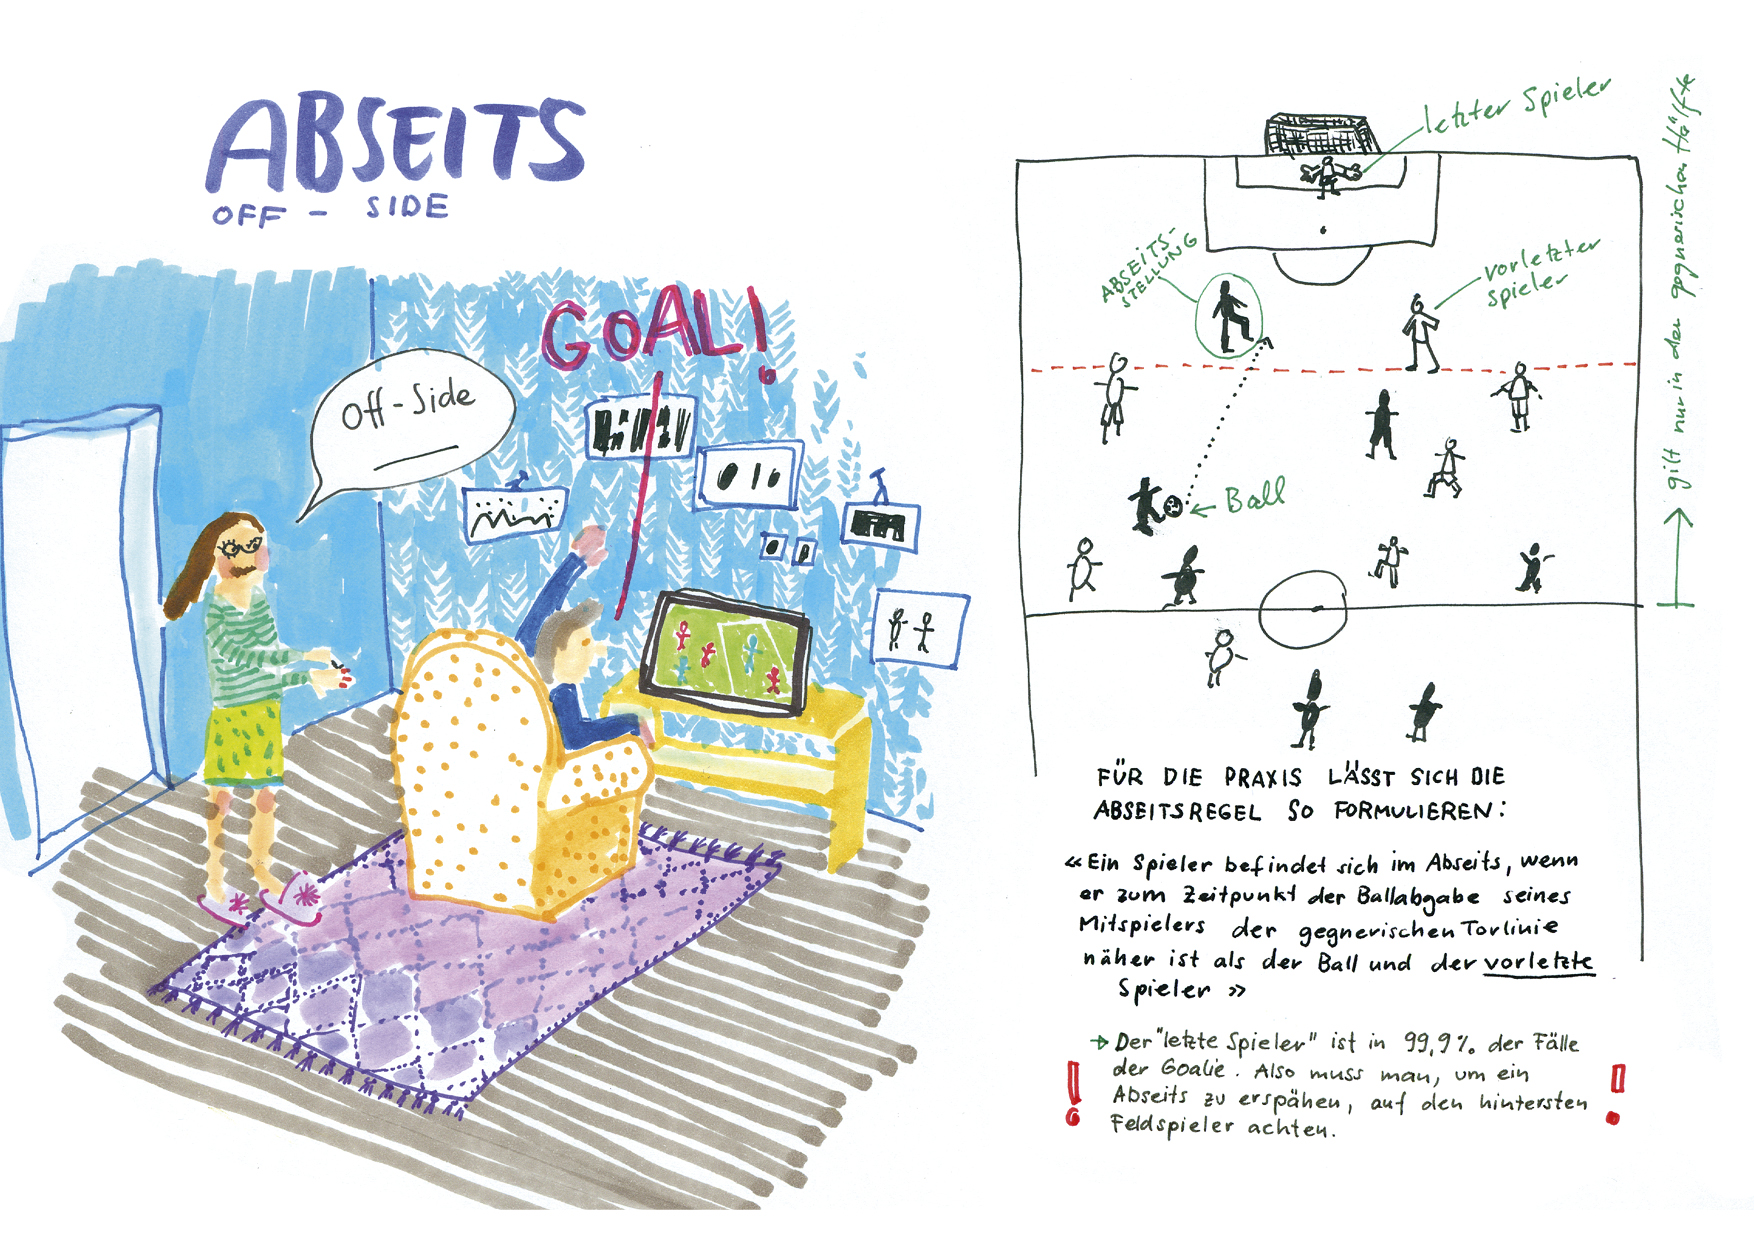 ABSEITS
OFF - SIDE
GOAL!
Off-Side
letzter Spieler
ABSEITS-
STELLUNG
vorletzter
spieler
Ball
gilt nur in der gegnerischen Hälfte
FÜR DIE PRAXIS LÄSST SICH DIE
ABSEITSREGEL SO FORMULIEREN:
«Ein Spieler befindet sich im Abseits, wenn
er zum Zeitpunkt der Ballabgabe seines
Mitspielers der gegnerischen Torlinie
näher ist als der Ball und der vorletzte
Spieler »
→ Der "letzte Spieler" ist in 99,9% der Fälle
der Goalie. Also muss man, um ein
Abseits zu erspähen, auf den hintersten
Feldspieler achten.
! !